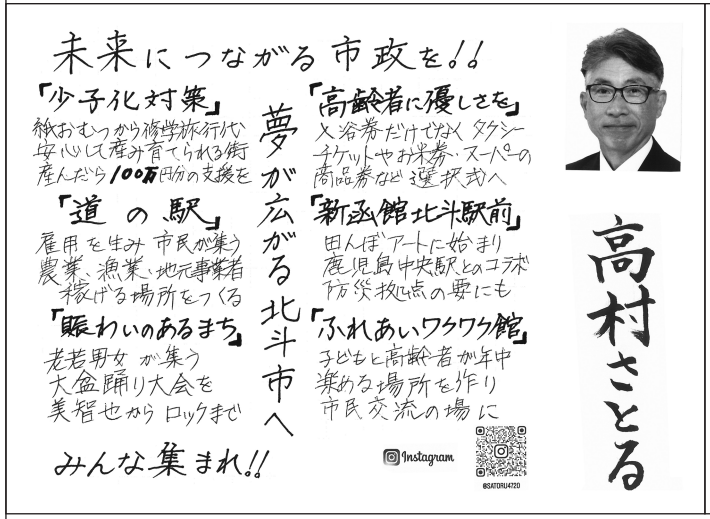 未来につながる市政を!!
「少子化対策」
紙おむつから修学旅行代
安心して産み育てられる街
産んだら100万円分の支援を
「道の駅」
雇用を生み 市民が集う
農業、漁業、地元事業者
稼げる場所をつくる
「賑わいのあるまち」
老若男女が集う
大盆踊り大会を
美智也からロックまで
みんな集まれ!!
夢が広がる北斗市へ
「高齢者に優しさを」
入浴券だけでなくタクシー
チケットやお米券・スーパーの
商品券など選択式へ
「新函館北斗駅前」
田んぼアートに始まり
鹿児島中央駅とのコラボ
防災拠点の要にも
「ふれあいワクワク館」
子どもと高齢者が年中
楽める場所を作り
市民交流の場に
Instagram
@SATORU4720
高村さとる